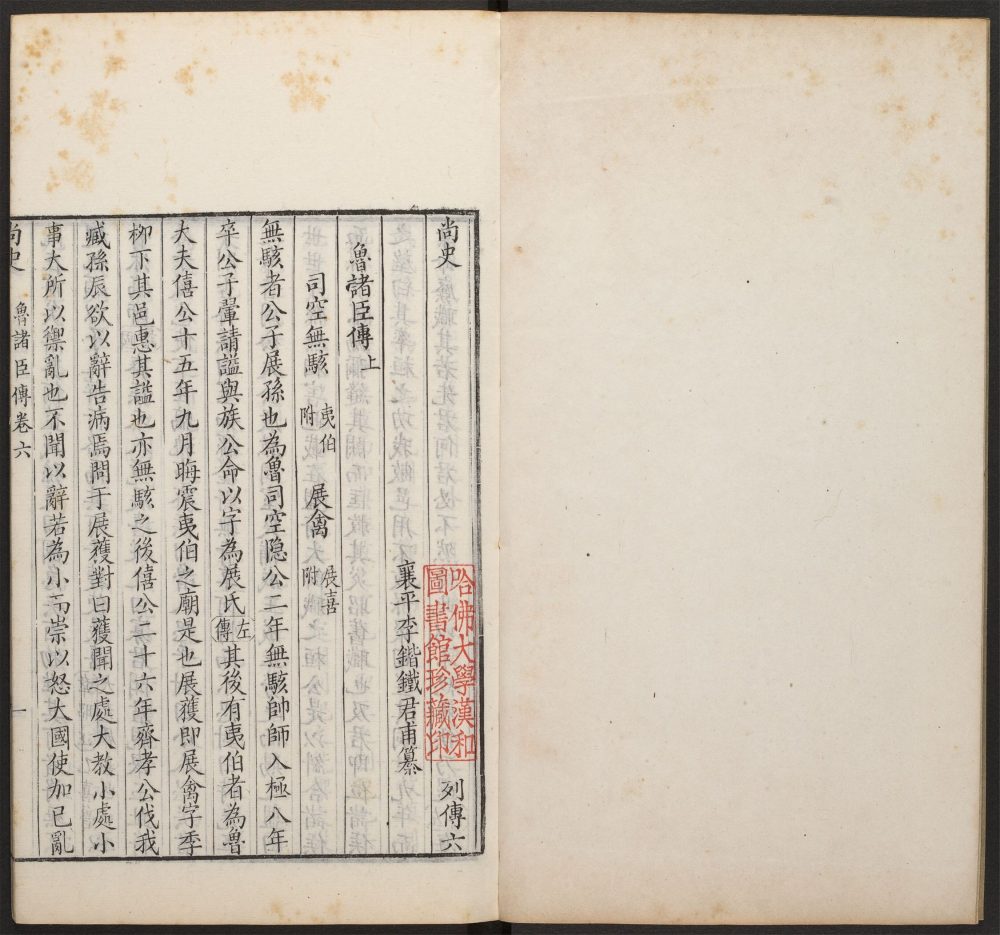 尚史 列傳六
襄平李鍇鐵君甫纂
魯諸臣傳上
司空無駭 夷伯附 展禽 展喜附
無駭者公子展孫也為魯司空隐公二年無駭帥師入極八年
卒公子翬請諡與族公命以字為展氏左傳其後有夷伯者為魯
大夫僖公十五年九月晦震夷伯之廟是也展獲即展禽字季
柳下其邑惠其諡也亦無駭之後僖公二十六年齊孝公伐我
臧孫辰欲以辭告病焉問于展獲對曰獲聞之處大教小處小
事大所以禦亂也不聞以辭若為小而崇以怒大國使加已亂
尚史 魯諸臣傳卷六 一
哈佛大學漢和
圖書館珍藏印